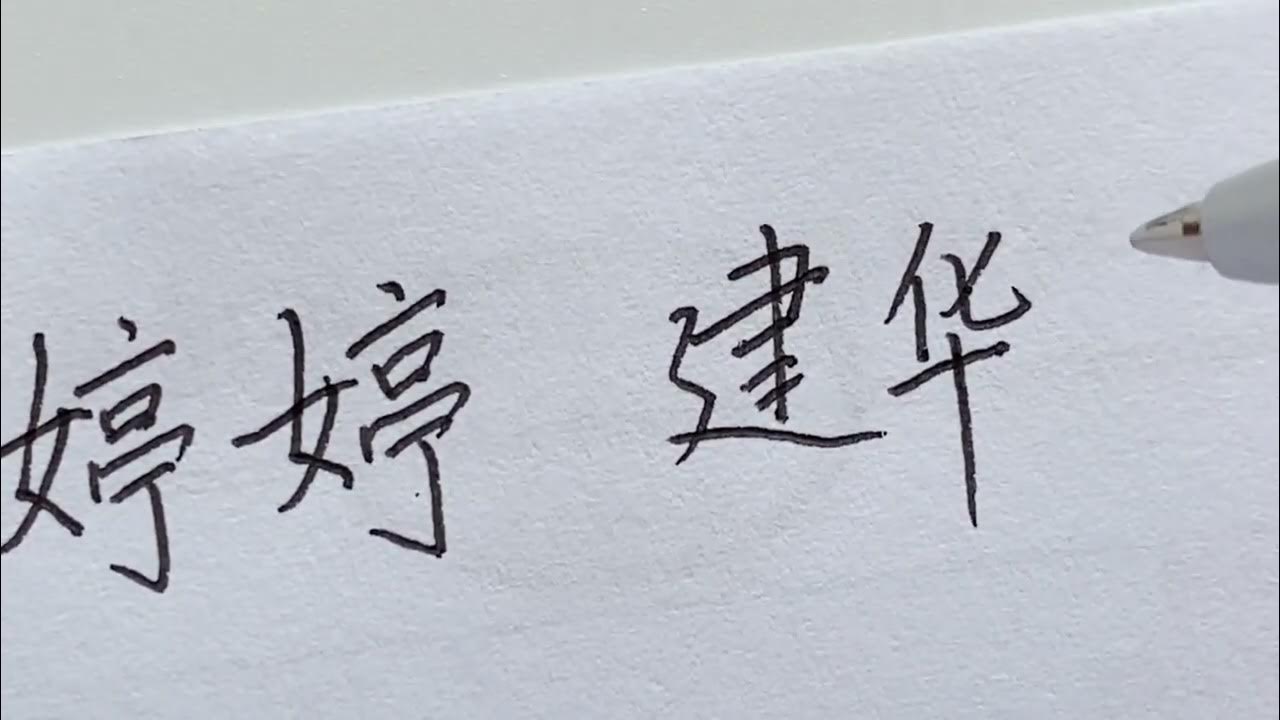 婷婷 建华